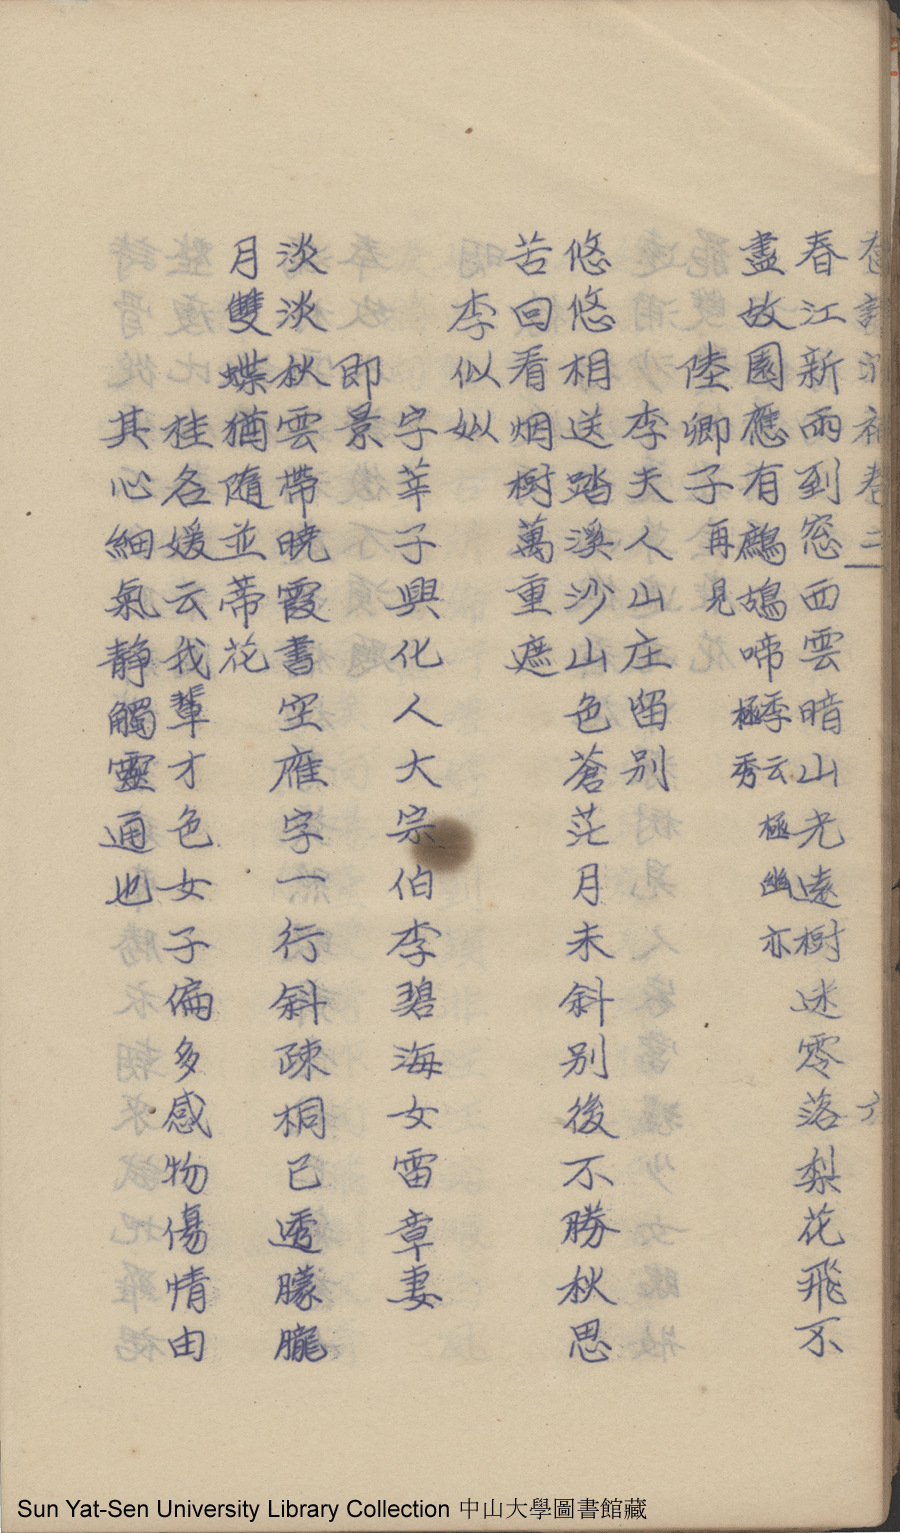 春江新雨到窓西雲暗山光遠樹迷零落梨花飛不
盡故園應有鷓鴣啼季云極幽亦極秀
陸卿子再見
李夫人山庄留别
悠悠相送踏溪沙山色蒼茫月未斜别後不勝秋思
苦回看烟樹萬重遮
李似姒
字莘子興化人大宗伯李碧海女雷章妻
即景
淡淡秋雲帶曉霞書空雁字一行斜疎桐已透朦朧
月雙蝶猶隨並蒂花
桂名媛云我輩才色女子偏多感物傷情由
其心細氣静觸靈通也
Sun Yat-Sen University Library Collection 中山大學圖書館藏